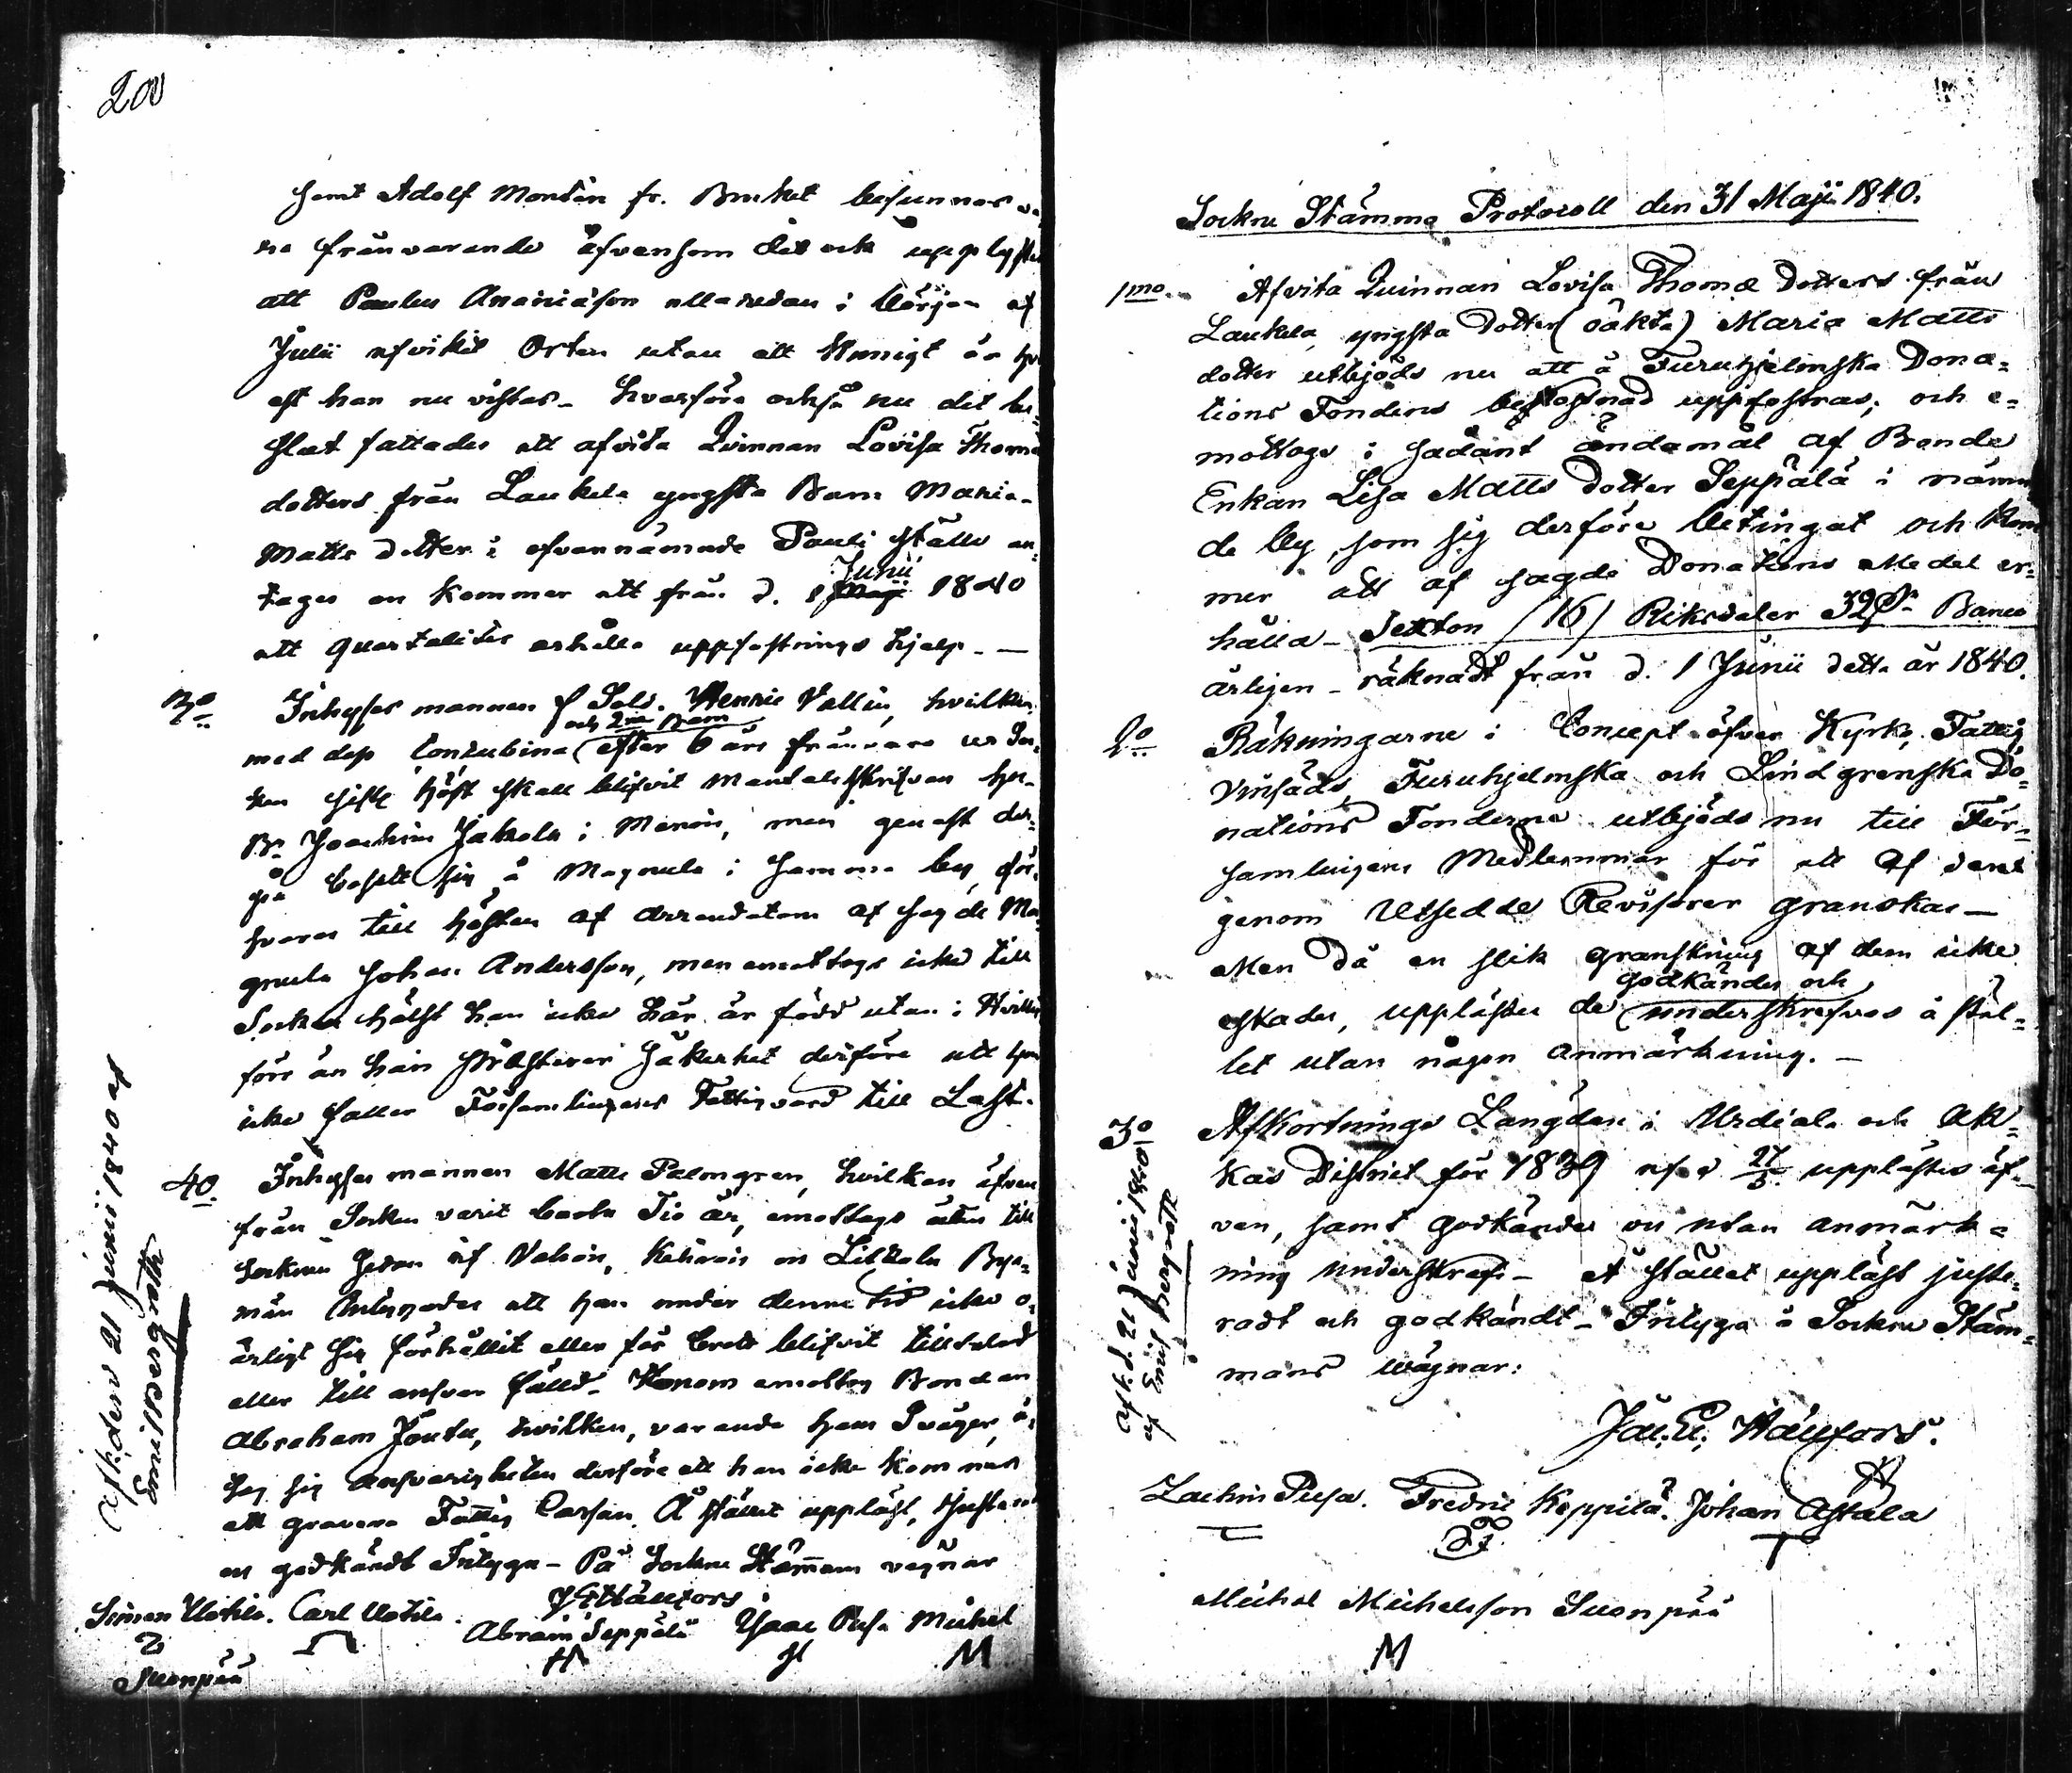 200
samt Adolf Montin fr. Burket befunnos va-
ra frånvarande äfvensom det ock upplystes
att Paulus Ananiäson allaredan i början af
Julii afvikit Orten utan att kunnigt är hvar-
est han nu vistas - hvarföre också nu det be-
slut fattades att afvita Qvinnan Lovisa Thomæ
dotters från Laukela yngsta Barn Maria
Matts dotter i ofvannämnde Pauli ställe an-
tages en kommer att från d. 1 Junii 1840
att Quartaliter erhålla uppfostrings hjelp. —
3o Inhyses mannen f Sold. Henric Vallin, hvilken
med dess Concubina (och 2ne Barn) efter 6 års frånvaro ur Soc-
ken sistl. höst skall blifvit Mantalsskrifven hos
Bn Joachim Jakola i Menois, men genast der-
på bosatt sig å Magnula i samma by, för-
svaras till hösten af Arrendatorn af sagde Ma-
gnula Johan Andersson, men emottogs icke till
Socken hälst han icke här är född utan i
förr än han säkerhet derföre att han
icke faller Församlingenes Fattigvård till Last.
4o Inhyses mannen Matts Palmgren, hvilken äfven
från Socken varit borta Tio år, emottogs åter till
Socknen sedan af Vahois, Kehrois en Lilkola Bya-
män Intygades att han under denne tid icke o-
ärligt sig förhållit eller för brott blifvit tilltalad
eller till ansvar fälld. Honom emottog Bonden
Abraham Joutu, hvilken, varande hans Svåger, å-
tog sig ansvarigheten derföre att han icke kommer
att gravera Fattig Cassan. Å stället uppläst, justerat
en godkändt Intyga - På Sockne Stämmans vägnar
Simon Uotila. Carl Uotila.
Abram Seppälä Isaac Pusa Michel
M
Suonpää
Afsk. den 21 Junii 1840 af
Emil Bergroth
Sockne Stämmo Protocoll den 31 Maji 1840.
1mo. Afvita Quinnan Lovisa Thomæ Dotters från
Laukela yngsta Dotter (oäkta) Maria Matts
dotter utbjöds nu att å Furuhjelmska Dona-
tions Fondens bekostnad uppfostras; och e-
mottogs i sådant ändamål af Bonde
Enkan Lisa Matts Dotter Seppälä i nämn-
de by, som sig derföre betingat och kom-
mer att af sagde Donations Medel er-
hålla - Sexton (16) Riksdaler 32 Banco
årligen - räknadt från d. 1 Junii detta år 1840.
2o Räkningarne i Concept öfver Kyrko, Fattig
Vinsäds, Furuhjelmska och Lindgrenska Do-
nations Fonderna utbjöds nu till För-
samlingens Medlemmar för att af dem
genom Utsedde Revisorer granskas —
Men då en slik granskning af dem icke
godkändes och
eskades, upplästes de underskrefvos å stäl-
let utan någon anmärkning. —
3o Afkortnings Längden i Urdiala och Ak-
kas District för 1839 af d 27/3 upplästes äf-
ven, samt godkändes en utan anmärk-
ning underskrefs - Å stället uppläst juste-
radt och godkändt - Intyga å Sockne Stäm-
mans wägnar:
Zachris Pusa. Fredric Keppilä. Johan Astala
Michel Michelsson Suonpää
M
Afsk. d. 21 Junii 1840
af Emil Bergroth